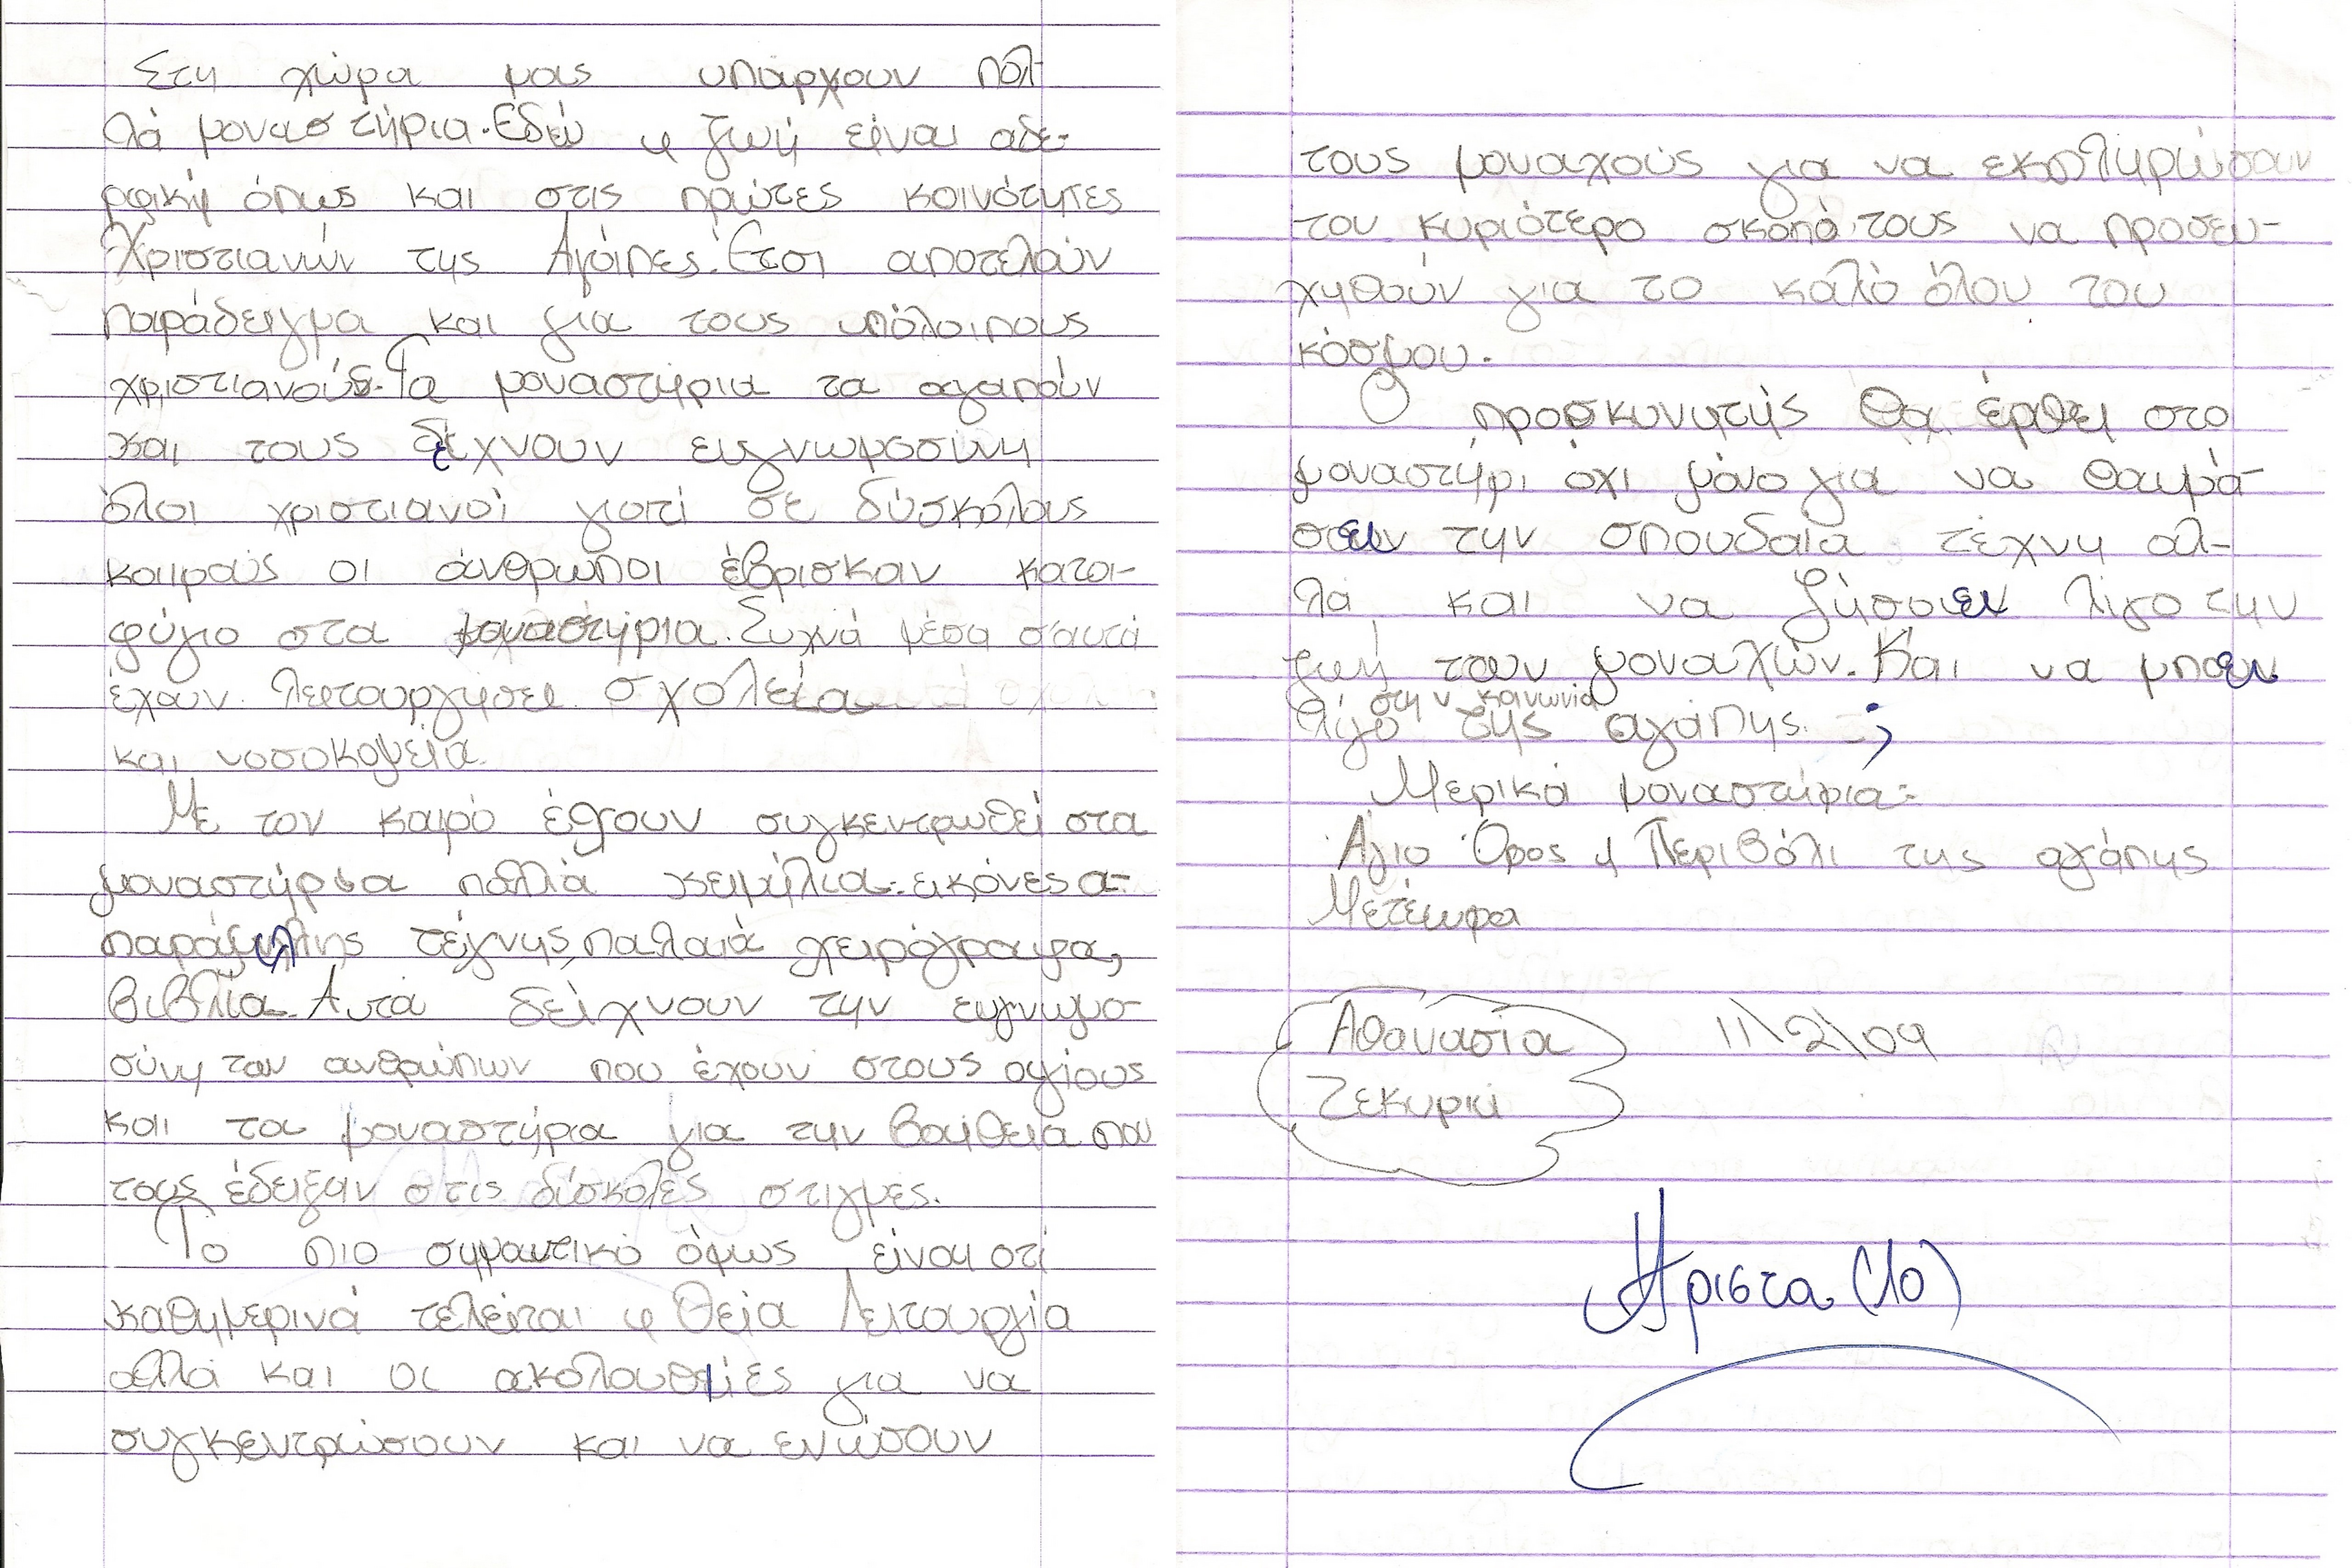 Στη χώρα μας υπάρχουν πολ-
λά μοναστήρια. Εδώ η ζωή είναι αδε-
ρφική όπως και στις πρώτες κοινότητες
Χριστιανών της Αγάπες. Έτσι αποτελούν
παράδειγμα και για τους υπόλοιπους
χριστιανούς. Τα μοναστήρια τα αγαπούν
και τους δείχνουν ευγνωμοσύνη
όλοι χριστιανοί γιατί σε δύσκολους
καιρούς οι άνθρωποι έβρισκαν κατα-
φύγιο στα μοναστήρια. Συχνά μέσα σ'αυτά
έχουν λειτουργήσει σχολεία
και νοσοκομεία.
Με τον καιρό έχουν συγκεντρωθεί στα
μοναστήρια πολλά κειμήλια: εικόνες α-
παράμιλλης τέχνης, παλαιά χειρόγραφα,
βιβλία. Αυτά δείχνουν την ευγνωμο-
σύνη των ανθρώπων που έχουν στους αγίους
και τα μοναστήρια για την βοήθεια που
τους έδειξαν στις δύσκολες στιγμες.
Το πιο σημαντικό όμως είναι οτί
καθημερινά τελείται η Θεία Λειτουργία
αλλά και οι ακολουθίες για να
συγκεντρώσουν και να ενώσουν
τους μοναχούς για να εκπληρώσουν
τον κυριότερο σκοπό τους να προσευ-
χηθούν για το καλό όλου του
κόσμου.
Ο προσκυνητής θα έρθει στο
μοναστήρι όχι μόνο για να θαυμά-
σει την σπουδαία τέχνη αλ-
λά και να ζήσει λίγο την
ζωή των μοναχών. Και να μπει
λίγο στην κοινωνία της αγάπης. ;
Μερικά μοναστήρια:
Άγιο Όρος ή Περιβόλι της αγάπης
Μετέωρα
Αθανασία 11\2\09
Ζεκυριά
Άριστα (10)